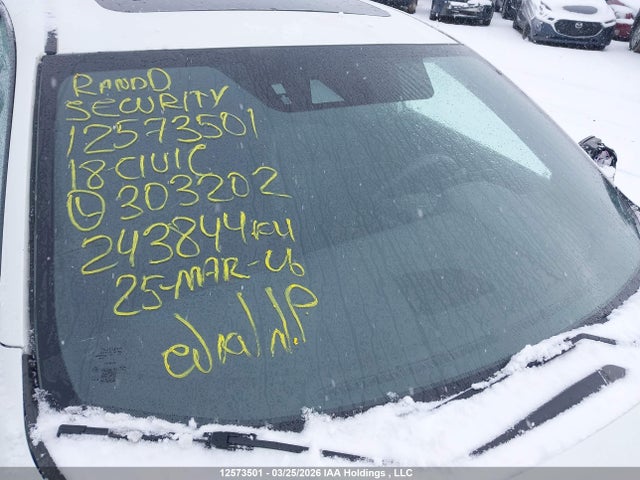 RANDD
SECURITY
12573501
18-CIVIC
L 303202
243844 KM
25-MAR-26
12573501 - 03/25/2026 IAA Holdings , LLC